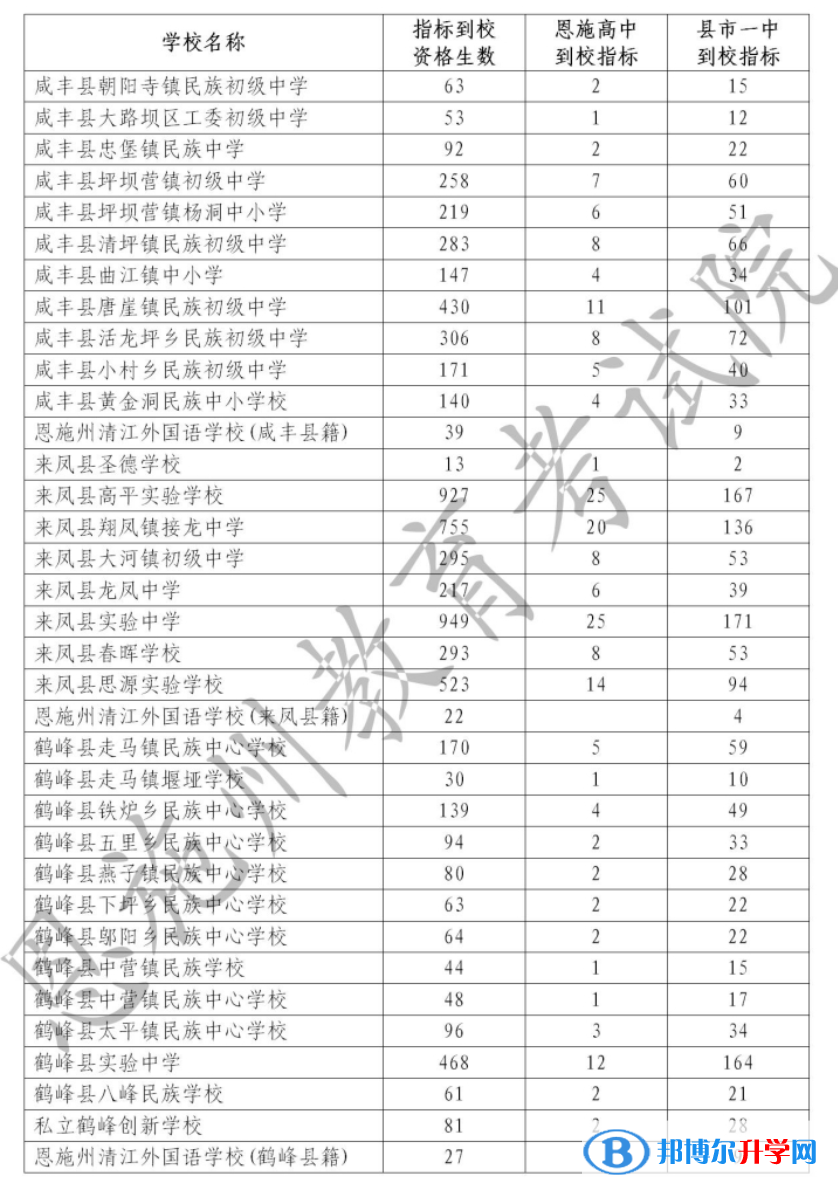 学校名称 指标到校资格生数 恩施高中到校指标 县市一中到校指标
咸丰县朝阳寺镇民族初级中学 63 2 15
咸丰县大路坝区工委初级中学 53 1 12
咸丰县忠堡镇民族中学 92 2 22
咸丰县坪坝营镇初级中学 258 7 60
咸丰县坪坝营镇杨洞中小学 219 6 51
咸丰县清坪镇民族初级中学 283 8 66
咸丰县曲江镇中小学 147 4 34
咸丰县唐崖镇民族初级中学 430 11 101
咸丰县活龙坪乡民族初级中学 306 8 72
咸丰县小村乡民族初级中学 171 5 40
咸丰县黄金洞民族中小学校 140 4 33
恩施州清江外国语学校(咸丰县籍) 39 9
来凤县圣德学校 13 1 2
来凤县高平实验学校 927 25 167
来凤县翔凤镇接龙中学 755 20 136
来凤县大河镇初级中学 295 8 53
来凤县龙凤中学 217 6 39
来凤县实验中学 949 25 171
来凤县春晖学校 293 8 53
来凤县思源实验学校 523 14 94
恩施州清江外国语学校(来凤县籍) 22 4
鹤峰县走马镇民族中心学校 170 5 59
鹤峰县走马镇堰垭学校 30 1 10
鹤峰县铁炉乡民族中心学校 139 4 49
鹤峰县五里乡民族中心学校 94 2 33
鹤峰县燕子镇民族中心学校 80 2 28
鹤峰县下坪乡民族中心学校 63 2 22
鹤峰县邬阳乡民族中心学校 64 2 22
鹤峰县中营镇民族学校 44 1 15
鹤峰县中营镇民族中心学校 48 1 17
鹤峰县太平镇民族中心学校 96 3 34
鹤峰县实验中学 468 12 164
鹤峰县八峰民族学校 61 2 21
私立鹤峰创新学校 81 2 28
恩施州清江外国语学校(鹤峰县籍) 27
恩施州教育考试院
B 邦博尔升学网